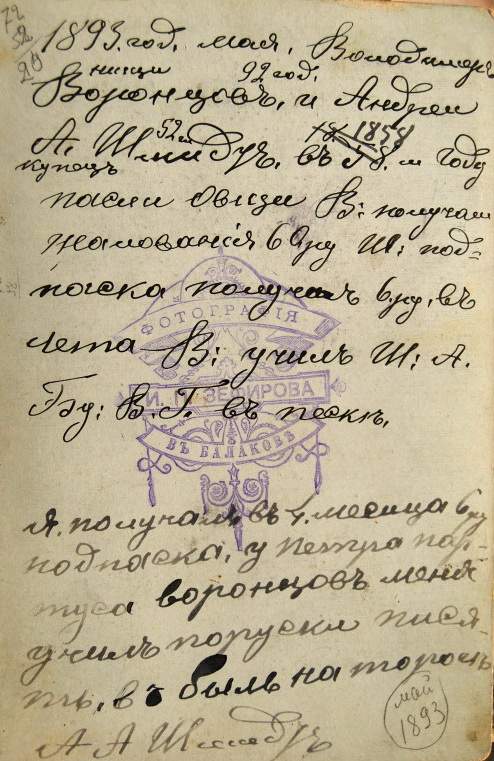 72
52
20
1893. год. мая. Володимеръ
нищи 92 год.
Воронцовъ. и Андреи
52
А. Шмидтъ. въ 1858 м году
купецъ
пасли овици В: получал
жалования 60 ру Ш: под-
паска получалъ 6. ру. въ
лета В: училъ Ш: А.
Бу: В. Г. въ песке.
ФОТОГРАФІЯ
И. П. ЗЕФИРОВА
ВЪ БАЛАКОВѢ
я. получалъ въ 4. месица 6 ру
подпаска, у петра пар-
туса воронцовъ меня
училъ поруски пися-
ть, в быль на
А А Шмидтъ
май
1893